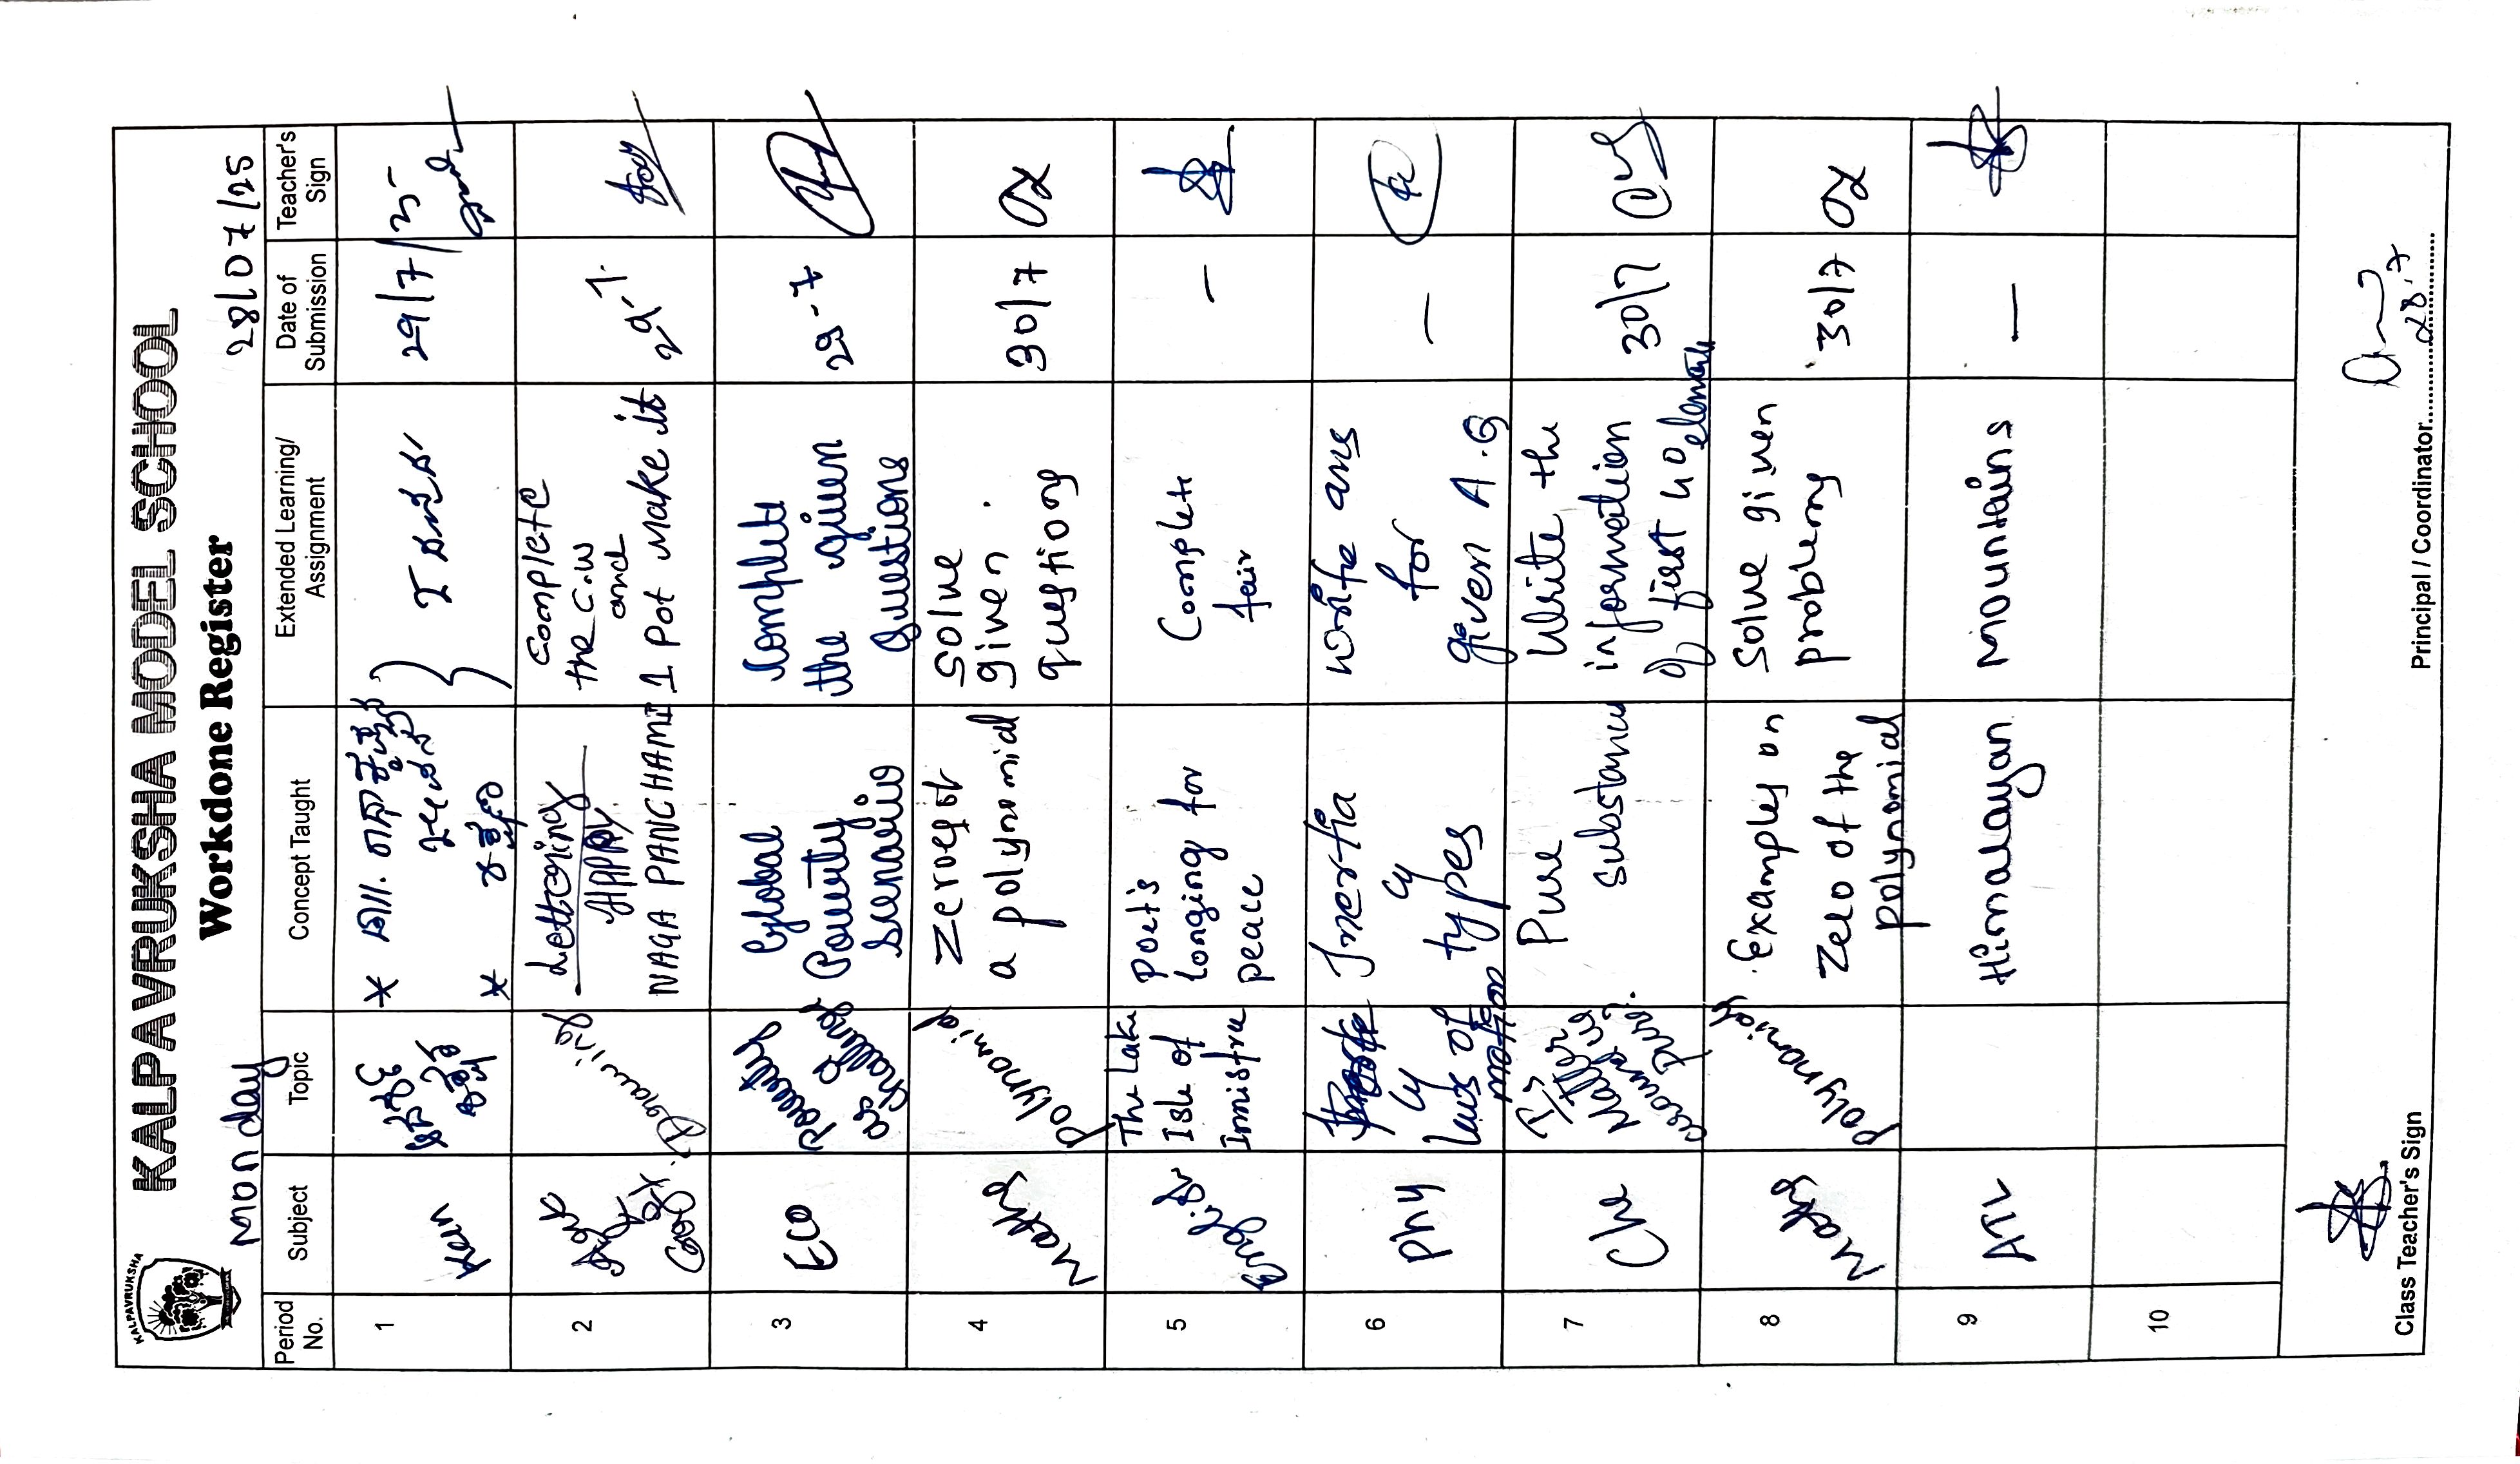 KALPAVRUKSHA
KALPAVRUKSHA MODEL SCHOOL
Workdone Register
Monday
28/07/25
Period No. Subject Topic Concept Taught Extended Learning/ Assignment Date of Submission Teacher's Sign
1 Kan 29/7/25
2 Drawing Lettering
HAPPY
NAGA PANCHAMI
Complete
the C.W
and
1 Pot make it
29.7.
3 Eco Poverty
as a
Challenge
Global
Poverty
Scenario
Complete
the given
Questions
29-7
4 Maths Polynomial
Zeroes of
a polynomial
Solve
given
questions
30/7
5 English The Lake
Isle of
Innisfree
Poet's
longing for
peace
Complete
fair
—
6 Phy
Laws of
motion
Inertia
types
write ans
for
given A.Q
—
7 Che Is
Matter
around us
Pure?
Pure
Substance
Write the
information
of first 40 elements
30/7
8 Maths Polynomial
Examples on
Zero of the
polynomial
Solve given
problems
30/7
9 ATL Himalayan Mountains —
10
Class Teacher's Sign
Principal / Coordinator
28.7